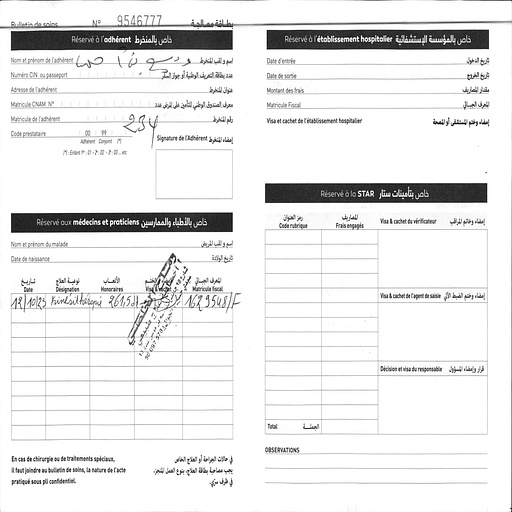 Bulletin de soins N° 9546777 بطاقة معالجة
Réservé à l'adhérent خاص بالمنخرط
Nom et prénom de l'adhérent اسم و لقب المنخرط
Numéro CIN ou passeport عدد بطاقة التعريف الوطنية أو جواز السفر
Adresse de l'adhérent عنوان المنخرط
Matricule CNAM N° معرف الصندوق الوطني للتأمين على المرض عدد
Matricule de l'adhérent رقم المنخرط
234
Code prestataire 00 99
Adhérent Conjoint (*)
(*) : Enfant 1er : 01 - 2e : 02 - 3e : 03 ... etc
Signature de l'Adhérent إمضاء المنخرط
Réservé aux médecins et praticiens خاص بالأطباء والممارسين
Nom et prénom du malade اسم و لقب المريض
Date de naissance تاريخ الولادة
تاريخ نوعية العلاج الأتعاب الختم المعرف الجبائي
Date Désignation Honoraires Visa & cachet Matricule fiscal
12/10/23 Kinésithérapie 1629548/F
En cas de chirurgie ou de traitements spéciaux,
il faut joindre au bulletin de soins, la nature de l'acte
pratiqué sous pli confidentiel.
في حالات الجراحة أو العلاج الخاص
يجب مصاحبة بطاقة العلاج، بنوع العمل المنجز،
في ظرف سري.
Réservé à l'établissement hospitalier خاص بالمؤسسة الإستشفائية
Date d'entrée تاريخ الدخول
Date de sortie تاريخ الخروج
Montant des frais مقدار المصاريف
Matricule Fiscal المعرف الجبائي
Visa et cachet de l'établissement hospitalier إمضاء وختم المستشفى أو المصحة
Réservé à la STAR خاص بتأمينات ستار
رمز العنوان المصاريف
Code rubrique Frais engagés
Visa & cachet du vérificateur إمضاء وخاتم المراقب
Visa & cachet de l'agent de saisie إمضاء وختم الضبط الآلي
Décision et visa du responsable قرار وإمضاء المسؤول
Total الجملة
OBSERVATIONS